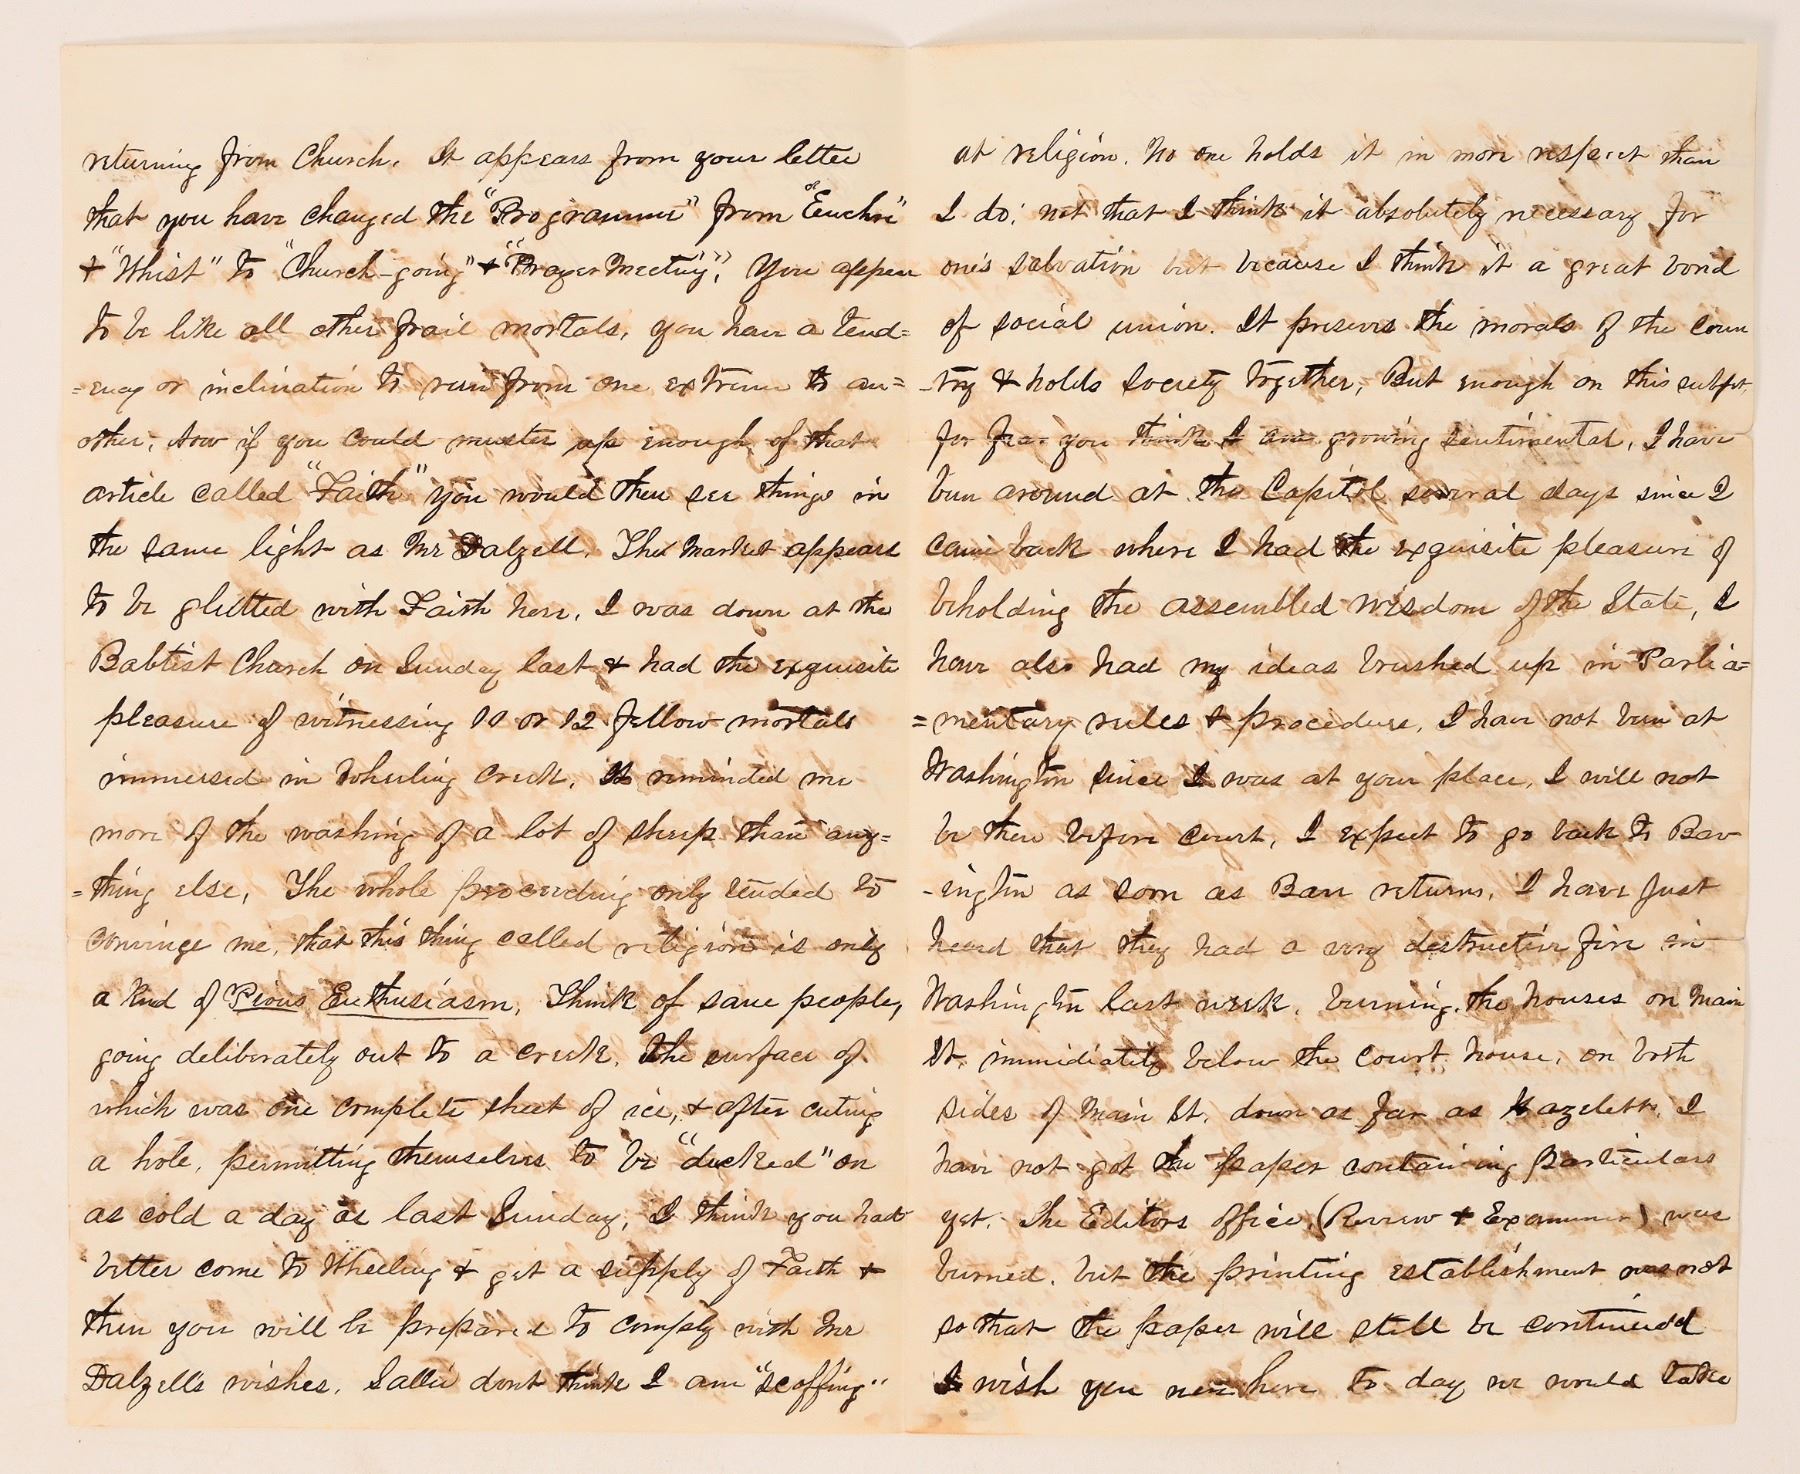 returning from Church. It appears from your letter
that you have changed the "Programme" from "of Euchre"
& "Whist" to "Church-going" & "Prayer Meeting". You appear
to be like all other frail mortals, you have a tend=
=ency or inclination to run from one extreme to an=
other, Now if you could muster up enough of that
article called "Faith" you would then see things in
the same light as Mr Dalzell. The Market appears
to be glutted with Faith here, I was down at the
Babtist Church on Sunday last & had the exquisite
pleasure of witnessing 10 or 12 fellow mortals
immersed in Wheeling Creek, It reminded me
more of the washing of a lot of sheep than any=
=thing else, The whole proceeding only tended to
convince me, that this thing called religion is only
a kind of Pious Enthusiasm, Think of sane people,
going deliberately out to a creek, the surface of
which was one complete sheet of ice, & after cuting
a hole, permitting themselves to be "ducked" on
as cold a day as last Sunday, I think you had
better come to Wheeling & get a supply of Faith &
then you will be prepared to comply with Mr
Dalzells wishes. Sallie dont think I am "scoffing"
at religion. No one holds it in more respect than
I do; not that I think it absolutely necessary for
one's salvation but because I think it a great bond
of social union. It preserves the morals of the coun
-try & holds society together, But enough on this subject,
for fear you think I am growing sentimental, I have
been around at the Capitol several days since I
came back where I had the exquisite pleasure of
beholding the assembled wisdom of the State, I
have also had my ideas brushed up in Parlia=
=mentary rules & procedure, I have not been at
Washington since I was at your place, I will not
be there before court, I expect to go back to Bav
-ington as soon as Barr returns, I have just
heard that they had a very destructive fire in
Washington last week, burning the houses on Main
St, immidiately below the Court house, on both
sides of Main St, down as far as Hazeletts, I
have not got the paper containing Particulars
yet, The Editors office, (Review & Examiner) was
burned, but the printing establishment was not
so that the paper will still be continued
I wish you were here to day we would take